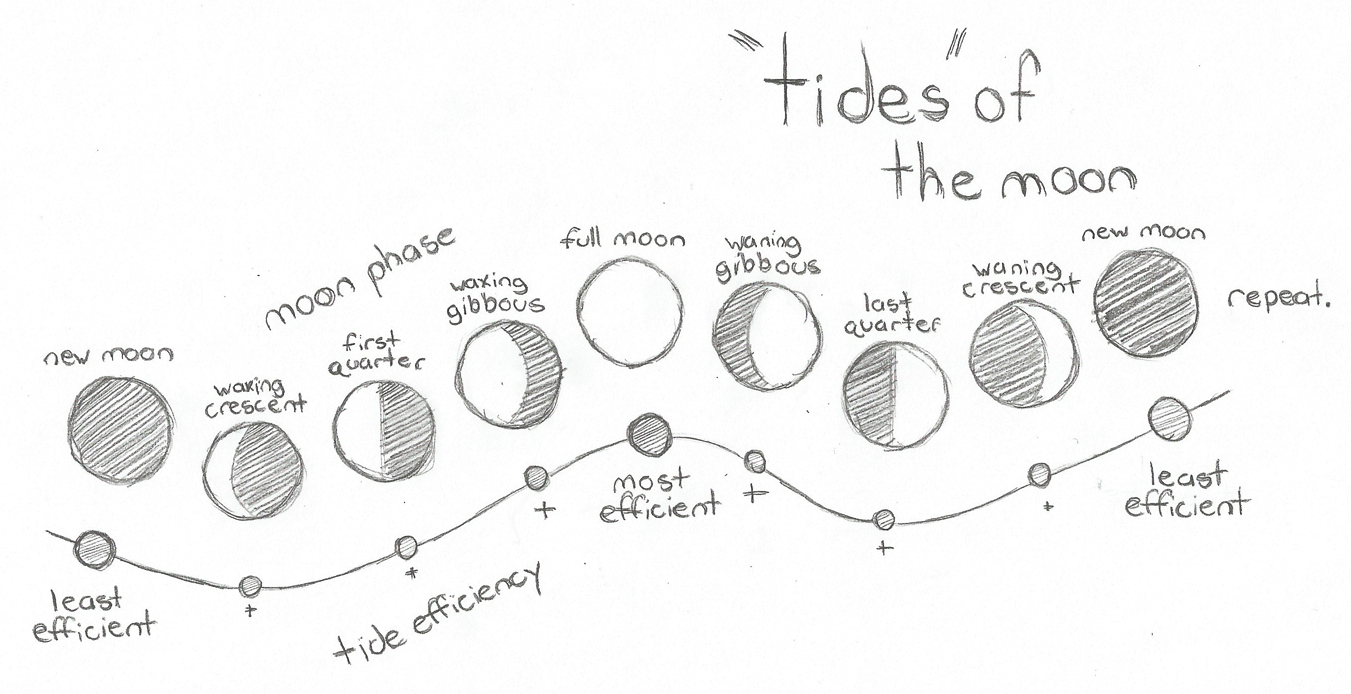 "tides" of
the moon
moon phase
new moon
waxing
crescent
first
quarter
waxing
gibbous
full moon
waning
gibbous
last
quarter
waning
crescent
new moon
repeat.
least
efficient
+
+
+
most
efficient
+
+
+
least
efficient
tide efficiency